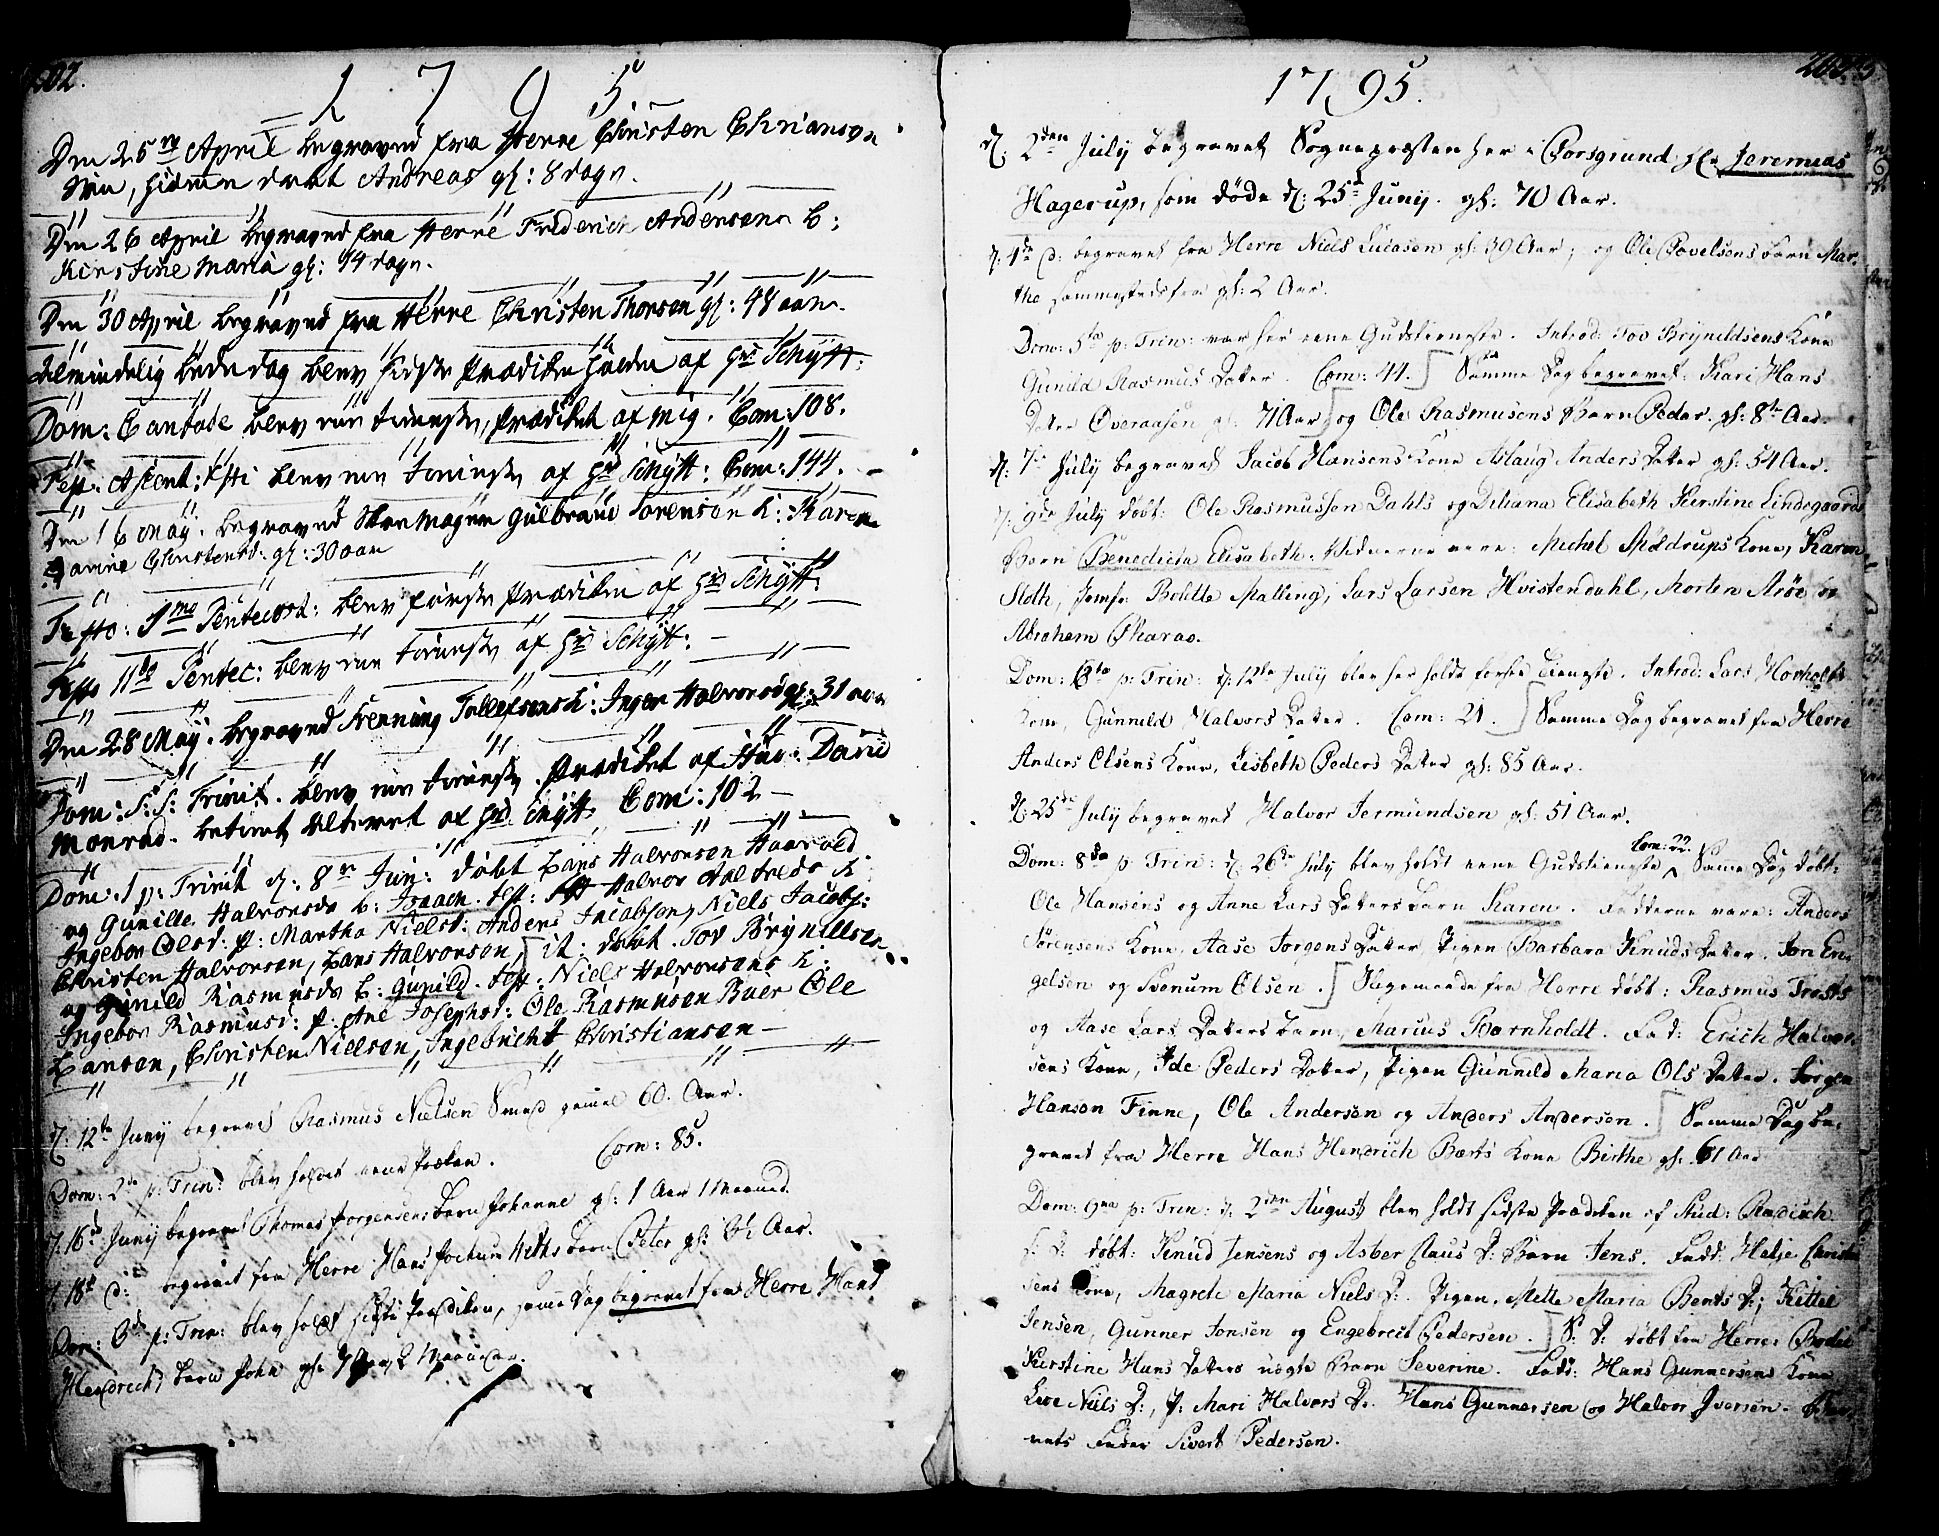 202.
1795
Den 25 April begraved fra Herre Christen Chrianson
hidmen døbt Andreas gl: 8 dage.
Den 26 April begraved fra Herre Friderich Andersens b:
Kirstine Maria gl: 14 dage.
Den 30 April begraved fra Herre Christen Thorsen gl: 48 aar.
Almindelig bededag blev sidste Prædiken holden af Hr Schytt:
Dom: Cantate blev een tieneste, Prædiket af mig. Com: 108.
Fest: Ascent: Xsti blev een tieneste af Hr Schytt: Com: 144.
Den 16 May. begraved Gulbrand Sørensøn k: Karen
Christensd: gl: 30 aar
Festo: 1mo Pentecost: blev første Prædiken af Hr Schytt:
Festo 11do Pentec: blev een tieneste af Hr Schytt:
Den 28 May. begraved Henning Tollefsens k: Inger Halvorsd gl: 31 aar
Dom: S: S: Trinit. blev een tieneste. Prædiket af Stud: David
Monrad. betient Alteret af Hr Schytt Com: 102
Dom: 1 p: Trinit d: 8 Juny: døbt Hans Halvorsen Haavold
og Gunille Halvorsds b: Isaach. test: Halvor k
Ingebor Olsd: p: Martha Nielsd: Anders Jacobsøn, Niels Jacobs:
Christen Halvorsen, Hans Halvorsøn, it: døbt Tov Brynilsen
og Gunild Rasmusds b: Gunild. test: Niels Halvorsens k:
Ingebor Rasmusd: p: Ane Josephsd: Ole Rasmusen Ole
Hansen, Christen Nielsen, Ingebricht Christiansen
d: 12te Junij begravet Rasmus Nielsen Smed gamel 60. Aar.
Dom: 2da p: Trin: blev holdet een Prædiken. Com: 85.
d: 16d Junij begravet Thomas Jorgensens Barn Johanne gl: 1 Aar 1 Maaned.
d: 18d d: begravet fra Herre Hans Jochum Barn Peter gl: 6½ Aar.
Dom: 3da p: Trin: blev holdt sidste Prædiken, samme Dag begravet fra Herre Hans
Hendrichs Barn John gl: 2 Maaneder.
203.
1795.
d: 2den July begravet Sognepræsten her i Porsgrund Hr. Jeremias
Hagerup, som døde d: 25d Junij. gl: 70 Aar.
d: 4de d: begravet fra Herre Niels Lucasen gl: 39 Aar; og Ole Povelsens Barn Mar-
the sammestedsfra gl: 2 Aar.
Dom: 5ta p: Trin: var her eene Gudstieneste. Introd: Tov Brynildsens Kone
Gunild Rasmus Datter. Com: 44. Samme Dag begravet: Kari Hans
Datter Øveraasen gl: 71 Aar og Ole Rasmusens Barn Peder gl: 8te Aar.
d: 7de July begravet Jacob Hansens Kone Aslaug Anders Datter gl: 54 Aar.
d: 9de July døbt: Ole Rasmussen Dahls og Diliana Elisabeth Kirstine Lindegaards
Barn Benedicta Elisabeth. Vidnerne vare: Michel Møldrups Kone, Karen
Stoth, Jomfr: Bolette Malling, Lars Larsen Hvistendahl, Morten Arøe og
Abraham Pharao.
Dom: 6ta p: Trin: d: 12te July blev her holdt første Tieneste. Introd: Lars Hovholts
Kone, Gunnild Halvors Datter. Com: 21. Samme Dag begravet fra Herre
Anders Olsens Kone, Lisbeth Peders Datter gl: 85 Aar.
d: 25de July begravet Halvor Jermundsen gl: 51 Aar.
Dom: 8da p: Trin: d: 26de July blev holdt eene Gudstieneste Com: 22. Same Dag døbt:
Ole Hansens og Anne Lars Datters Barn Karen. Fadderne vare: Anders
Sørensens Kone, Aase Jorgens Datter, Pigen Barbara Knuds Datter. Jon En-
gelsen og Benum Olsen. Ligemaade fra Herre døbt: Rasmus Trosts
og Aase Lars Datters Barn, Marius Bornholdt. Fad: Erich Halvor-
sens Kone, Ide Peders Datter, Pigen Gunnild Maria Ols Datter. Jorgen
Hanson Finne, Ole Andersen og Anders Andersen. Samme Dag be-
gravet fra Herre Hans Hendrich Børts Kone Birthe gl: 61 Aar
Dom: 9na p: Trin: d: 2den August blev holdt sidste Prædiken af Stud: Radich
S: D: døbt: Knud Jensens og Asber Claus D: Barn Jens. Fadd: Hatje Christen-
sens Kone, Magrete Maria Niels D: Pigen, Mette Maria Bents D; Kittel
Jensen, Gunner Jonsen og Engebrecht Pedersen. S: D: døbt fra Herre: Bodil
Kirstine Hans Datters uægte Barn Severine. Fadd: Hans Gunnersens Kone
Live Niels D:, P: Mari Halvors D. Hans Gunnersen og Halvor Iversen. Bar-
nets Fader Sivert Pedersen.